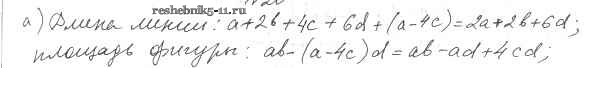 reshebnik5-11.ru
а) Длина линии: a+2b+4c+6d+(a-4c)=2a+2b+6d;
площадь фигуры: ab-(a-4c)d=ab-ad+4cd;